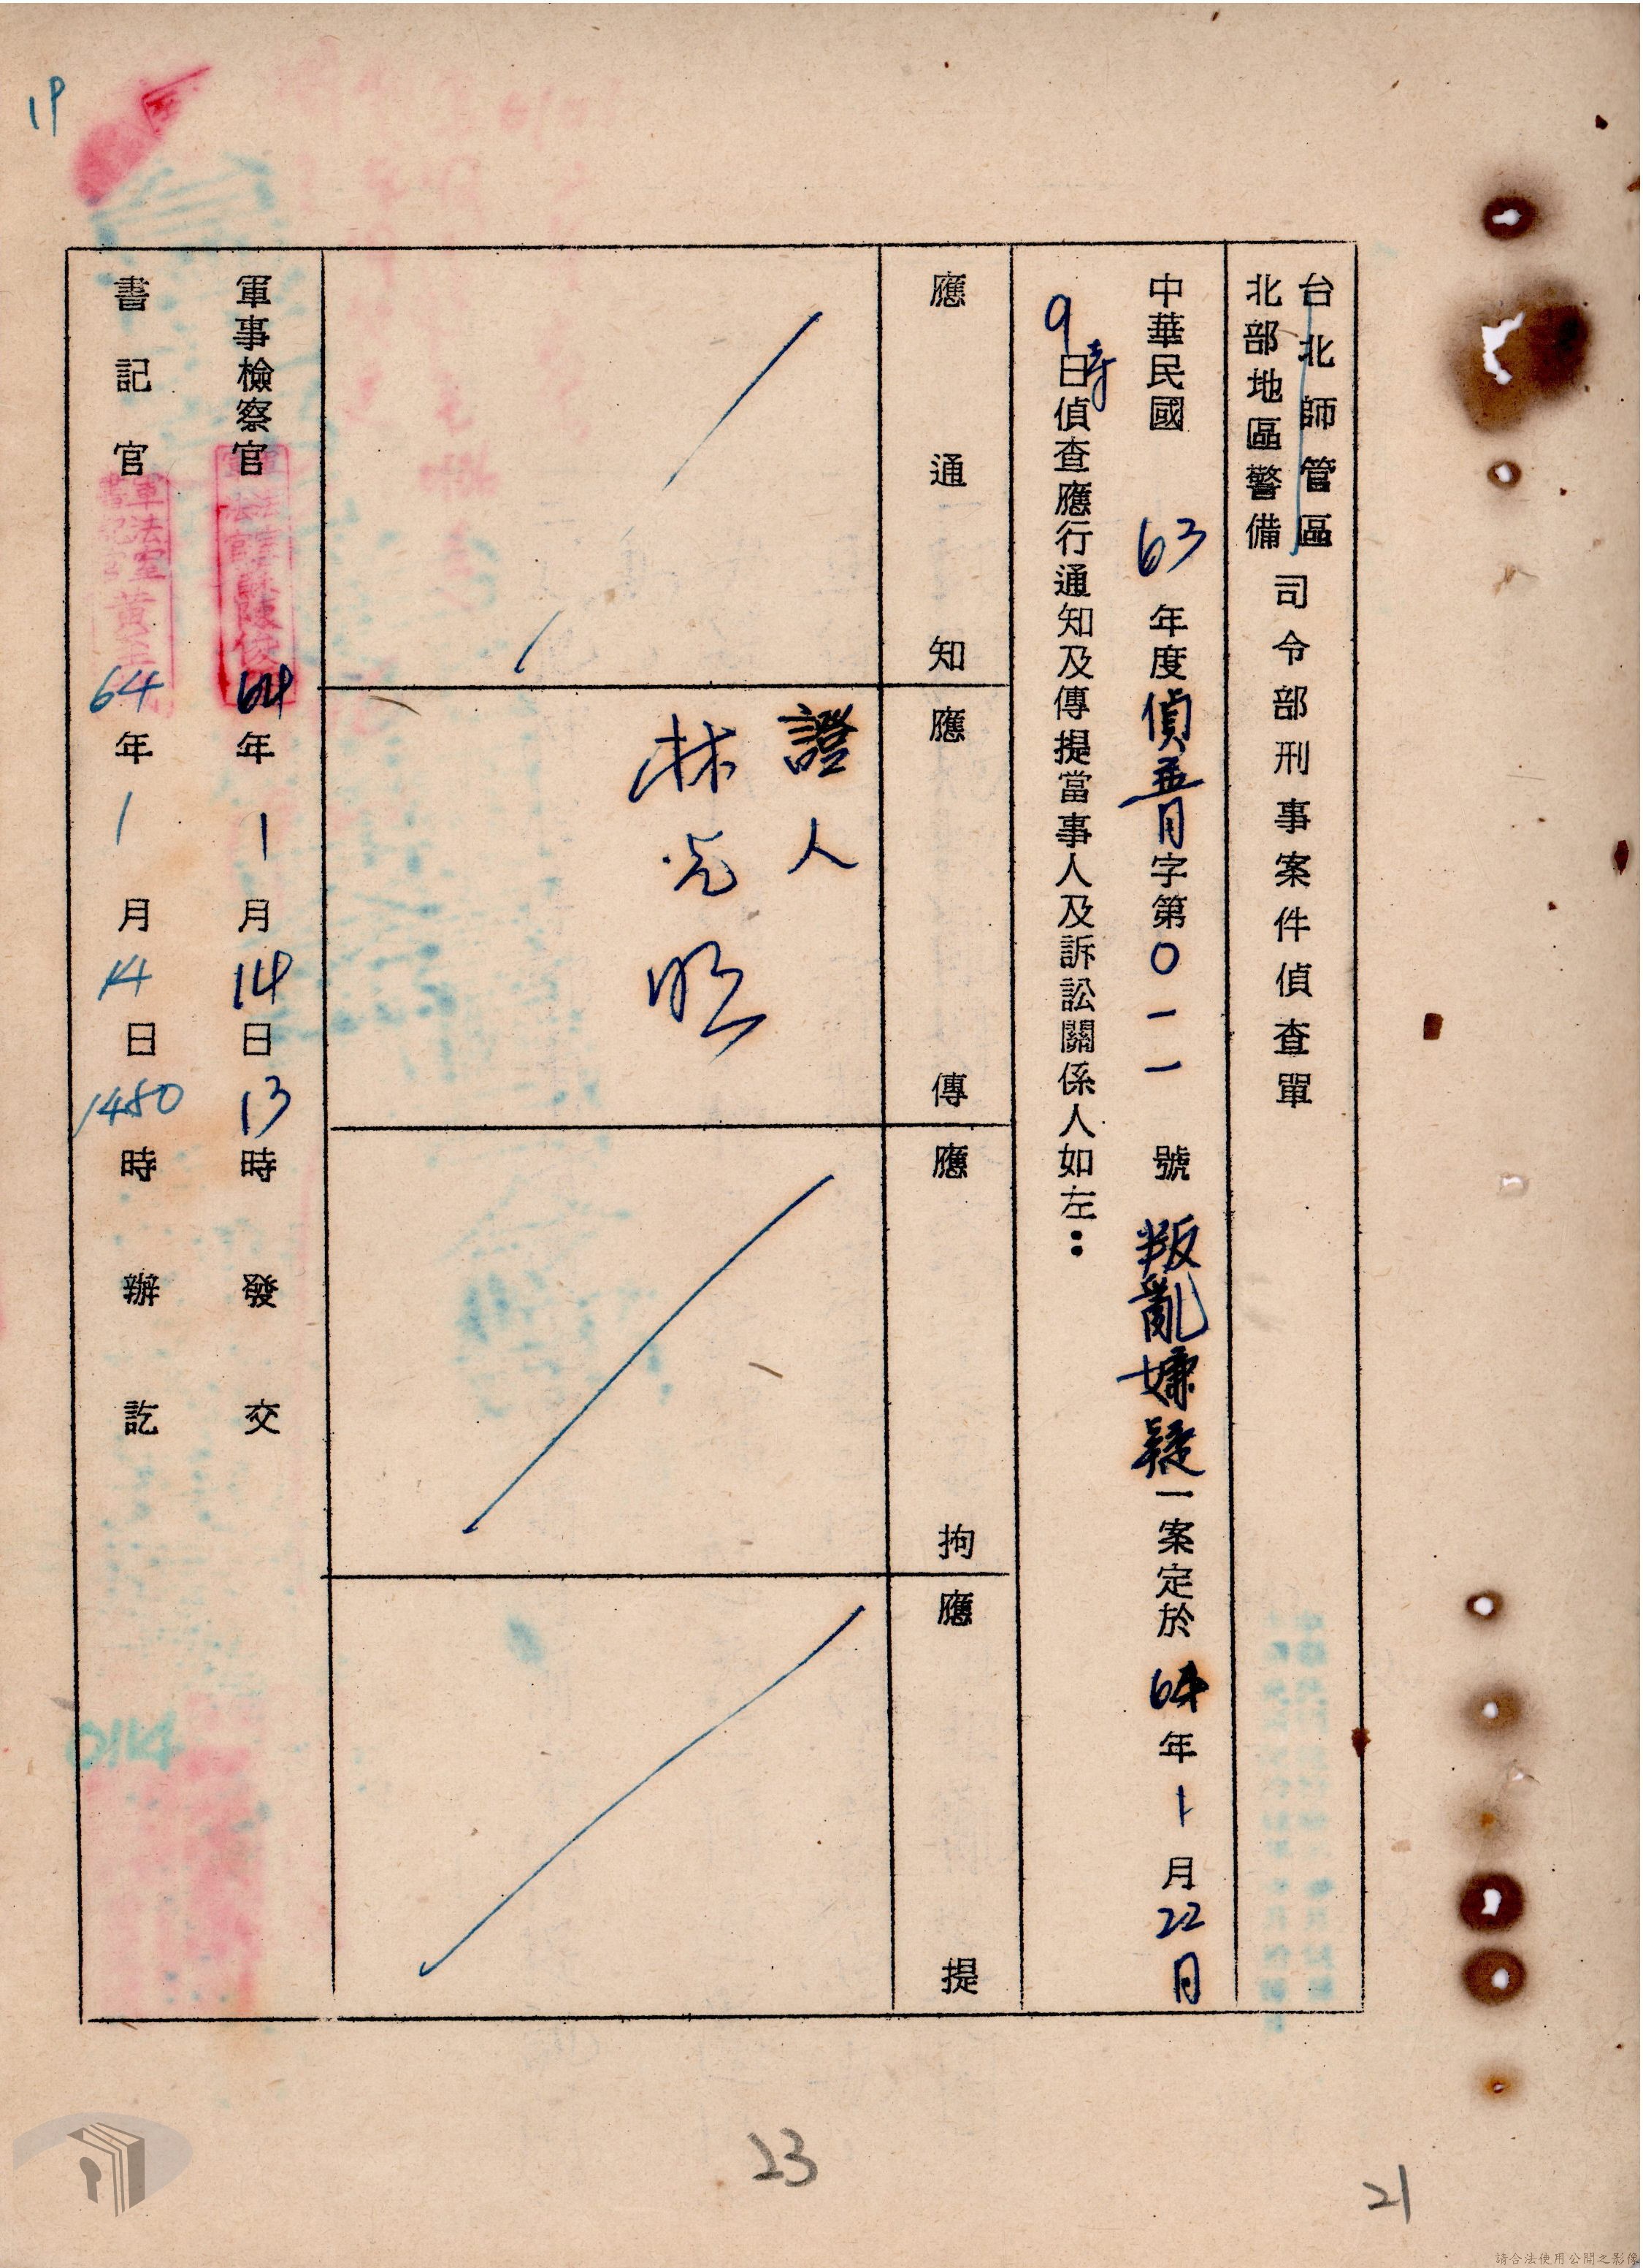 台北師管區
北部地區警備
司令部刑事案件偵查單
中華民國 63 年度偵菁字第〇一一號 叛亂嫌疑一案定於 64 年 1 月 22 日
9時日偵查應行通知及傳提當事人及訴訟關係人如左：
應通知
應傳
應拘
應提
證人
林光明
軍事檢察官 64 年 1 月 14 日 13 時發交
書記官 64 年 1 月 14 日 1450 時辦訖
軍法室
書記官 黃
19
0114
23
21
請合法使用公開之影像